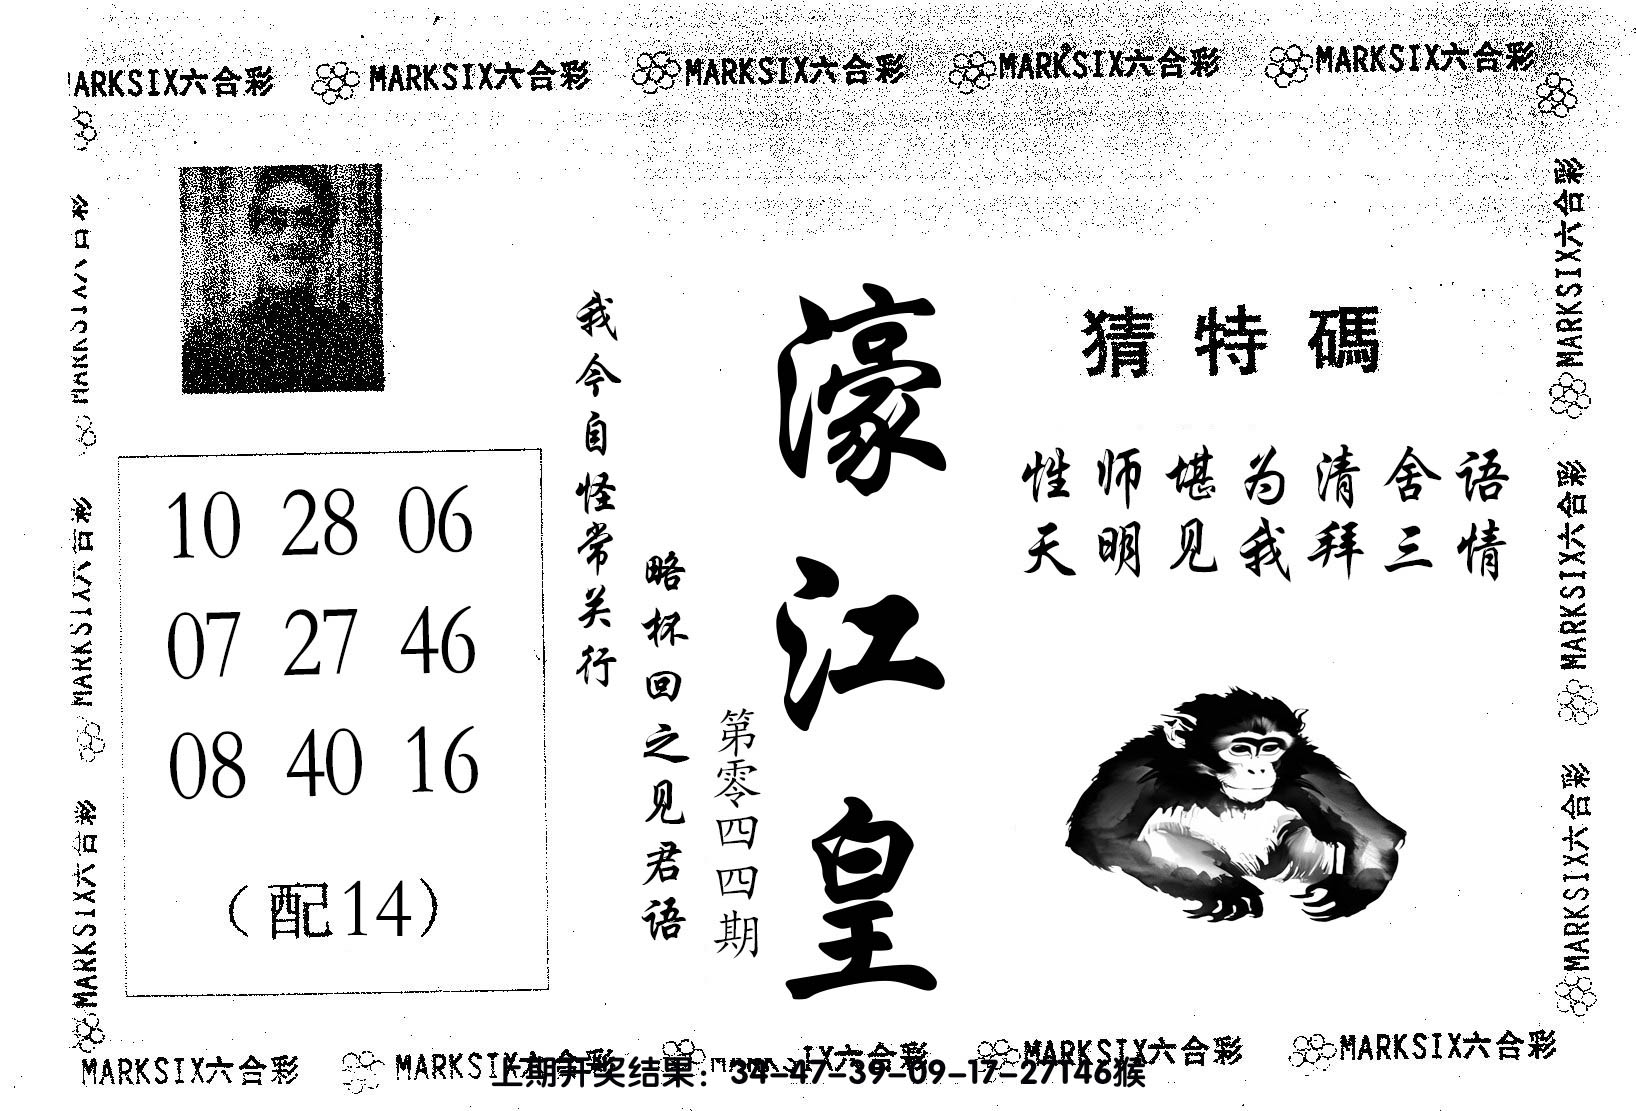 MARKSIX六合彩 MARKSIX六合彩 MARKSIX六合彩 MARKSIX六合彩 MARKSIX六合彩
猜特碼
性师堪为清舍语
天明见我拜三情
濠江皇
第零四四期
我今自怪常关行
略杯回之见君语
10 28 06
07 27 46
08 40 16
（配14）
MARKSIX六合彩
MARKSIX六合彩
MARKSIX六合彩
MARKSIX六合彩
MARKSIX六合彩
MARKSIX六合彩
MARKSIX六合彩 MARKSIX六合彩 IX六合彩 MARKSIX六合彩 MARKSIX六合彩
上期开奖结果：34-47-39-09-17-27T46猴